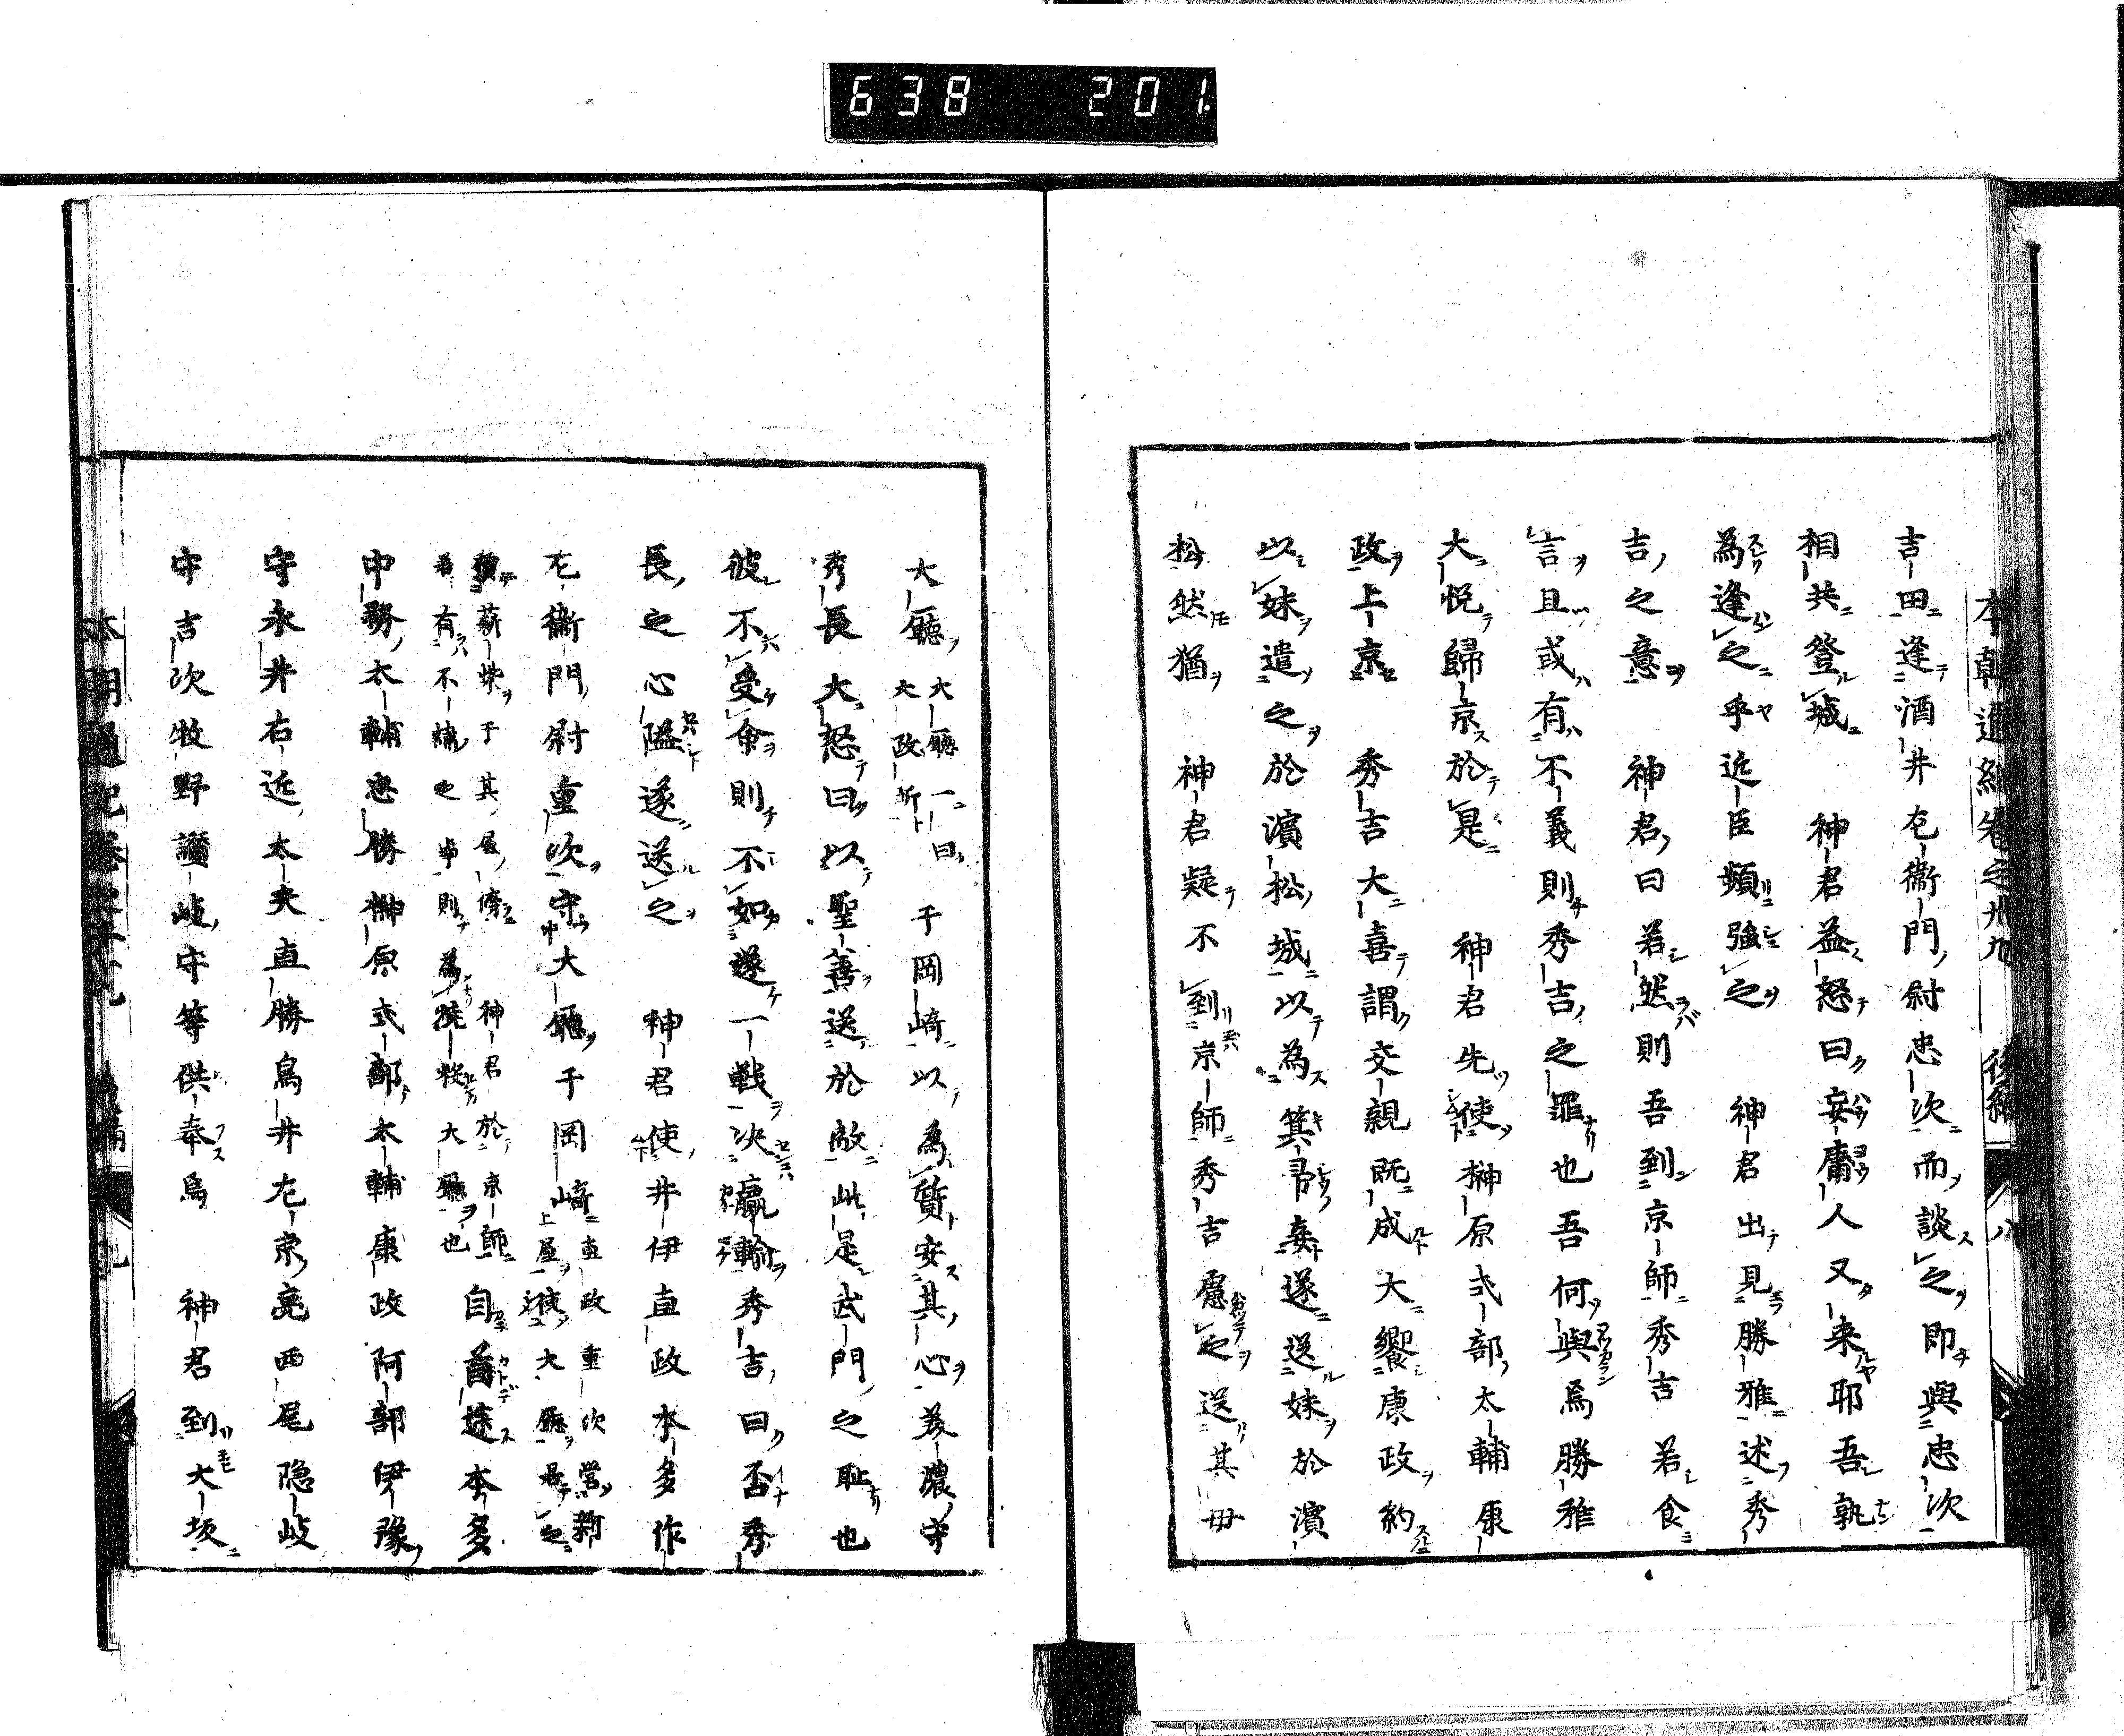 638 201
本朝通紀卷之卅九 後編 八
吉田逢酒井左衞門尉忠次而談之即與忠次
相共登城 神君益怒曰妄庸人又来耶吾孰
為逢之乎近臣頻強之 神君出見勝雅述秀
吉之意 神君曰若然則吾到京師秀吉若食
言且或有不義則秀吉之罪也吾何與焉勝雅
大悦歸京於是 神君先使榊原式部太輔康
政上京 秀吉大喜謂交親既成大饗康政約
以妹遣之於濱松城以為箕帚妾遂送妹於濱
松然猶 神君疑不到京師秀吉慮之送其母
大廳大廳一曰大政所于岡崎以為質安其心美濃守
秀長大怒曰以聖善送於敵此足武門之耻也
彼不受命則不如遂一戦决贏輸秀吉曰否秀
長之心隘遂送之 神君使井伊直政本多作
左衞門尉重次守大廳于岡崎直政重次營新上屋使大廳居之
積薪柴于其屋傍 神君於京師若有不諱之事則為焼殺大廳也自首途本多
中務太輔忠勝榊原式部太輔康政阿部伊豫
守永井右近太夫直勝鳥井左京亮西尾隐岐
守吉次牧野讃岐守等供奉焉 神君到大坂